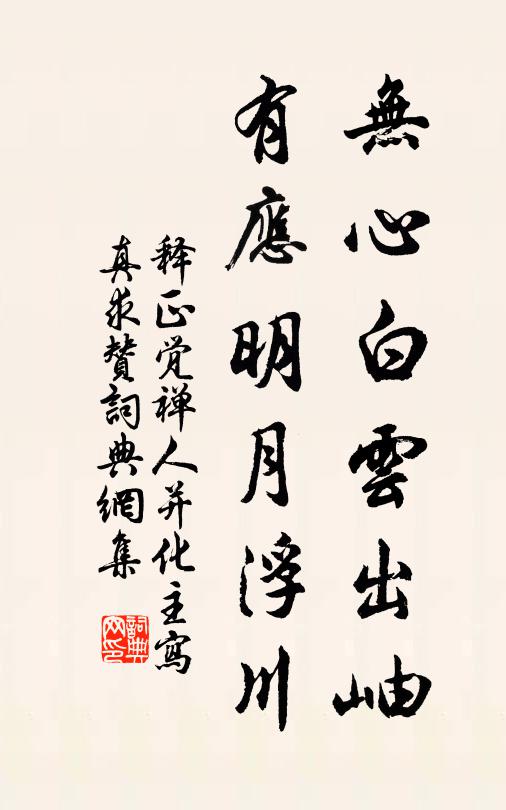 無心白雲出岫
有應明月浮川
释正觉禅人并化主寫
真求賛詞典網集
詞典网印